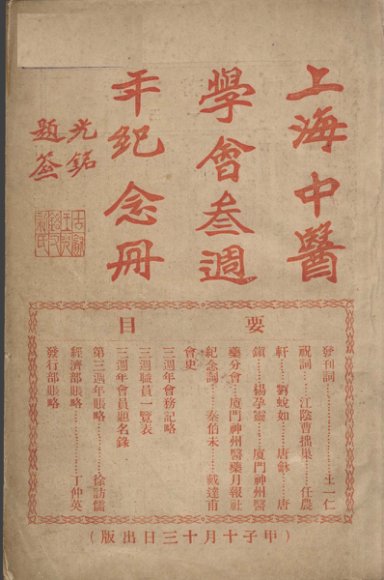 上海中醫
學會叁週
年紀念冊
光銘
題簽
要目
發刊詞……王一仁
祝詞……江陰曹拙巢……任農
軒……劉蛻如……唐龢……唐
鎮……楊孕靈……廈門神州醫
藥分會……廈門神州醫藥月報社
紀念詞……秦伯未……戴達甫
會史
三週年會務記略
三週職員一覽表
三週年會員題名錄
第三週年賬略……徐訪儒
經濟部賬略……丁仲英
發行部賬略
（甲子十月十三日出版）